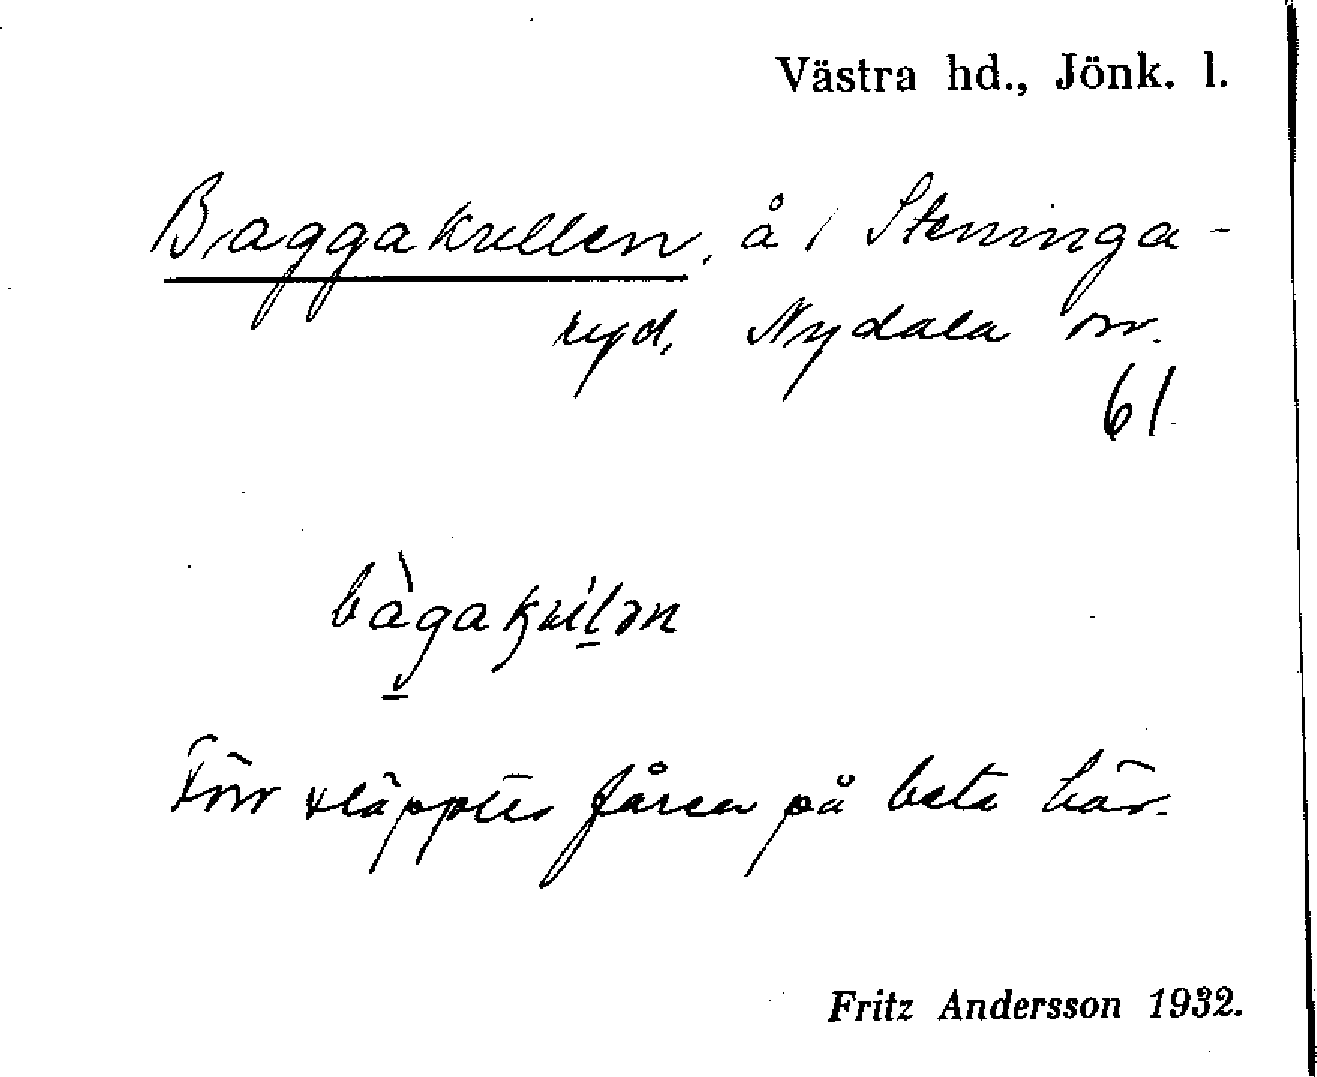 Västra hd., Jönk. l.
Baggakullen, å i Steninga-
ryd, Nydala sn.
61
bàgakuĺən
Förr släpptes fåren på bete här.
Fritz Andersson 1932.